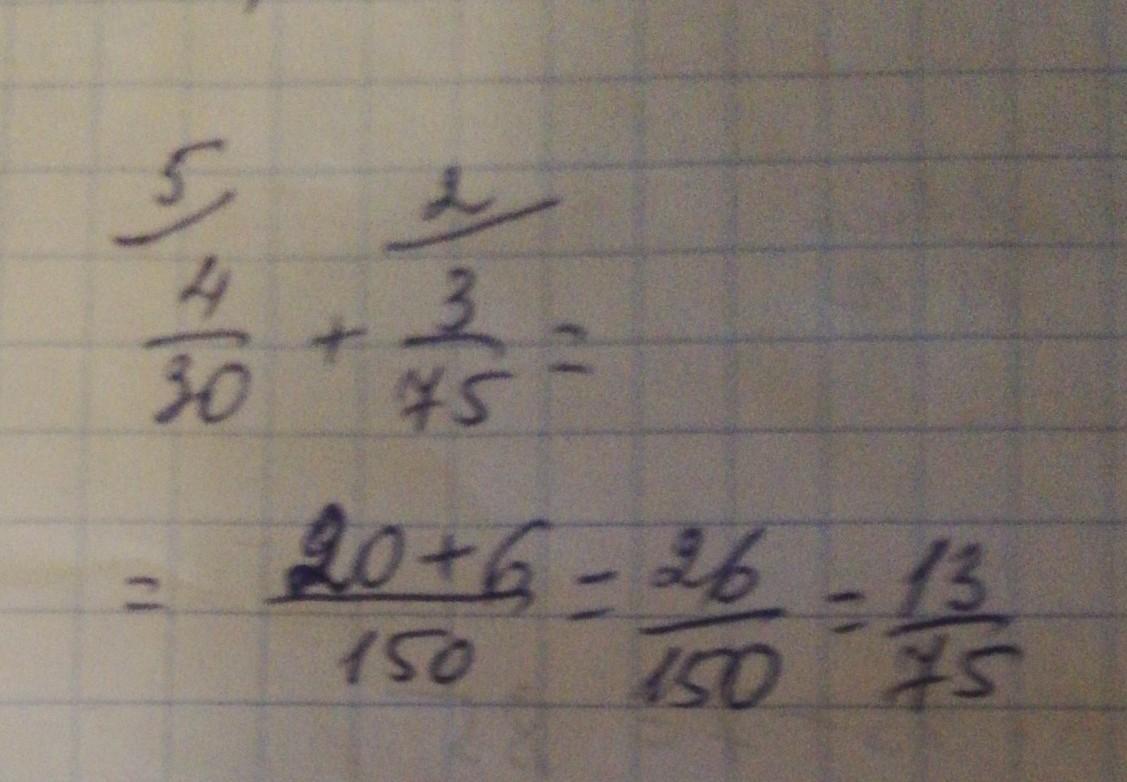 5/ 2/
4/30 + 3/75 =
= 20+6/150 = 26/150 = 13/75